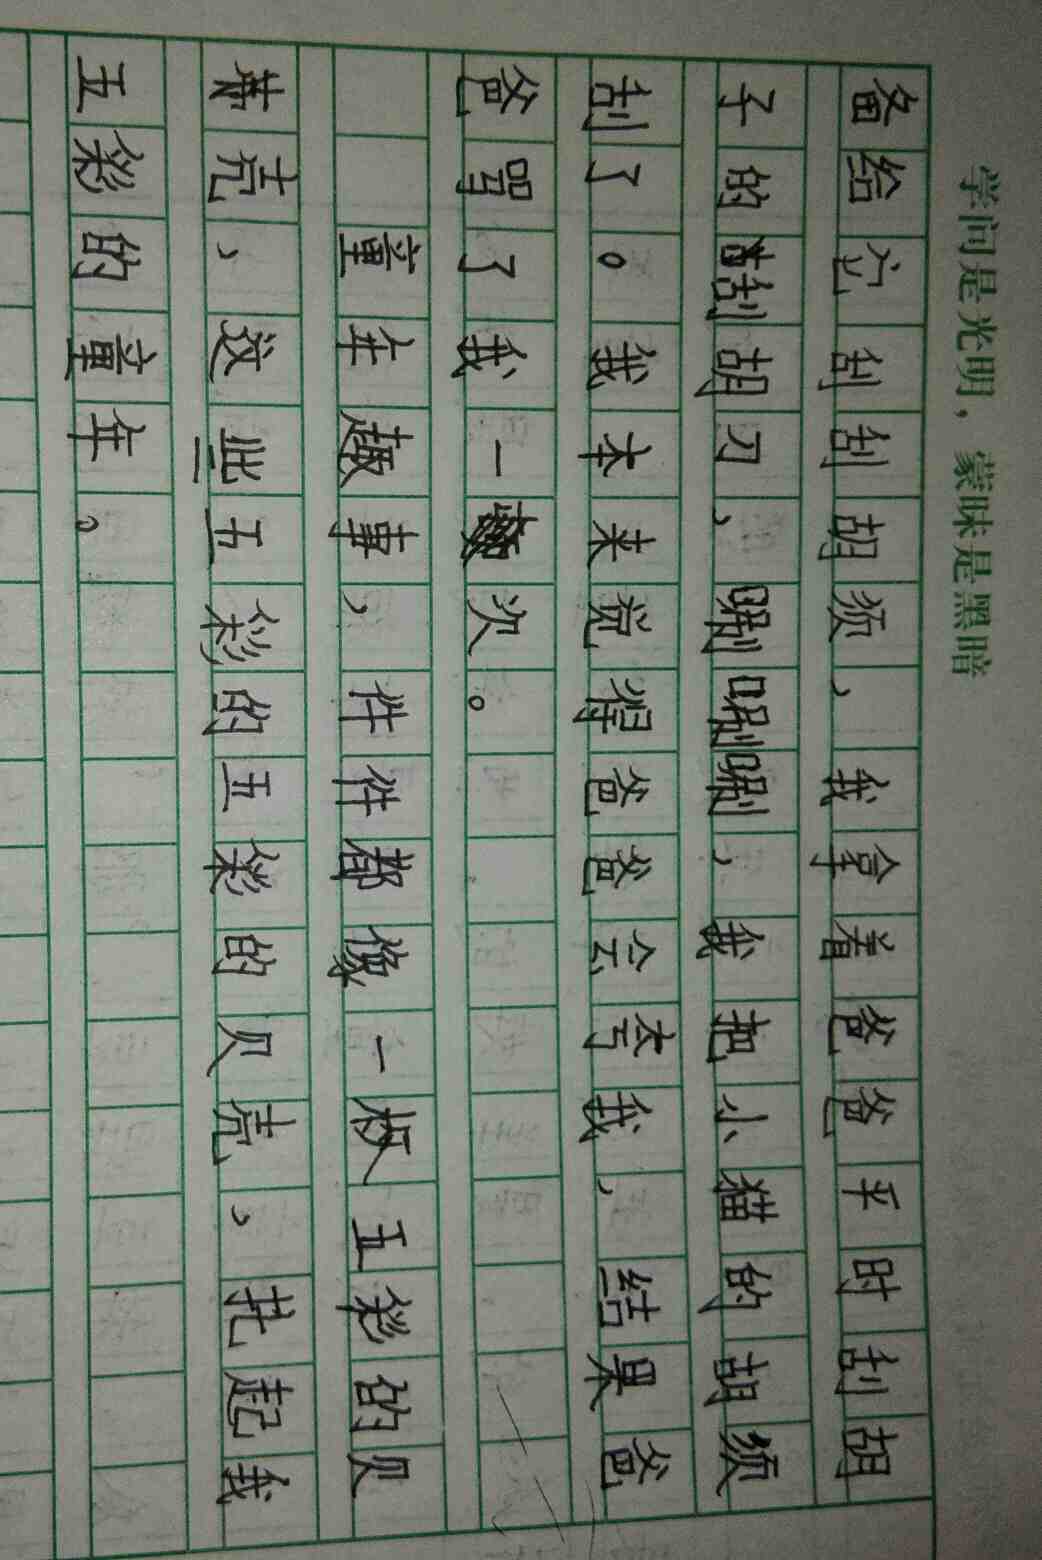 学问是光明，蒙昧是黑暗
备给它刮刮胡须，我拿着爸爸平时刮胡
子的刮胡刀，唰唰唰，我把小猫的胡须
刮了。我本来觉得爸爸会夸我，结果爸
爸骂了我一次。
童年趣事，件件都像一枚五彩的贝
壳，这些五彩的五彩的贝壳，托起我
五彩的童年。